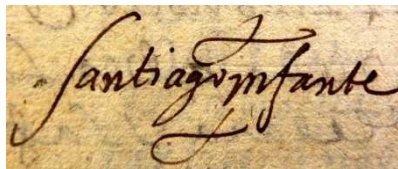 Santiago ynfante